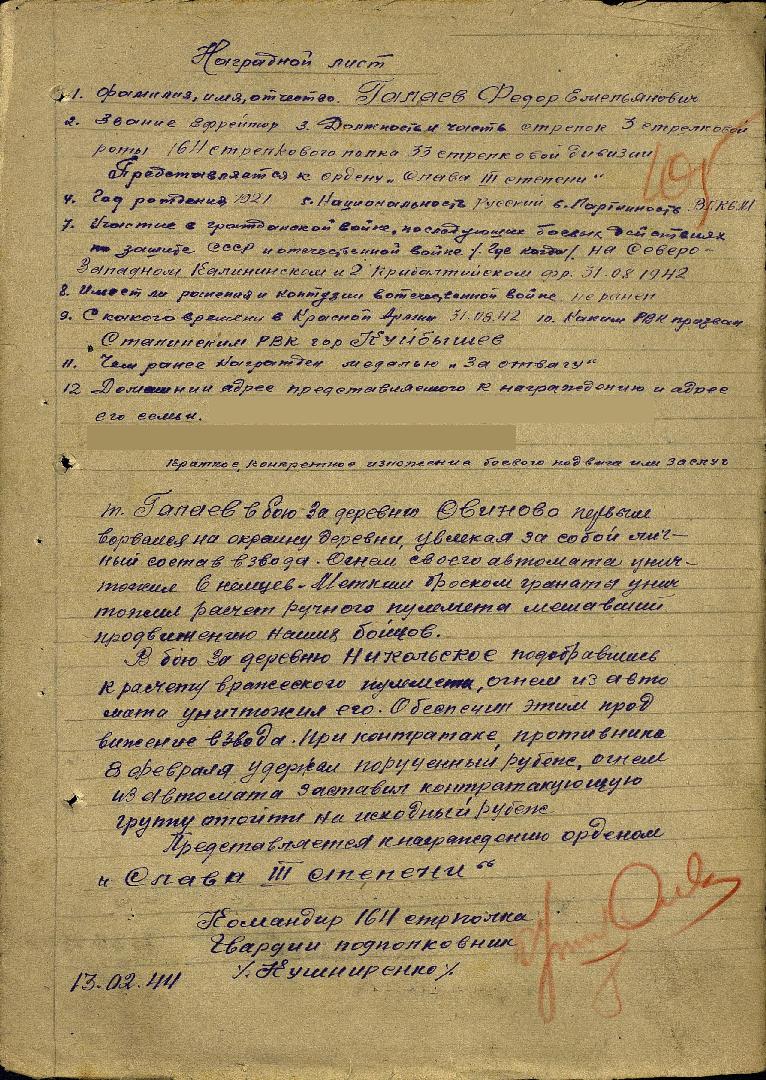 Наградной лист
1. Фамилия, имя, отчество. Галаев Федор Емельянович
2. Звание Ефрейтор 3. Должность и часть стрелок 3 стрелковой
роты 164 стрелкового полка 33 стрелковой дивизии
Представляется к ордену „Слава III степени"
105
4. Год рождения 1921 5. Национальность Русский 6. Партийность ВЛКСМ
7. Участие в гражданской войне, последующих боевых действиях
по защите СССР и отечественной войне /Где когда/ на Северо-
Западном Калининском и 2 Прибалтийском фр. 31.08.1942
8. Имеет ли ранения и контузии в отечественной войне не ранен
9. С какого времени в Красной Армии 31.08.42 10. Каким РВК призван
Сталинским РВК гор Куйбышев
11. Чем ранее награжден медалью „За отвагу"
12 Домашний адрес представляемого к награждению и адрес
его семьи.
Краткое, конкретное изложение боевого подвига или заслуг
т. Галаев в бою за деревни Овиново первым
ворвался на окраину деревни, увлекая за собой лич-
ный состав взвода. Огнем своего автомата унич-
тожил 6 немцев. Метким броском граната унич
тожил расчет ручного пулемета мешавший
продвижению наших бойцов.
В бою за деревню Никольское подобравшись
к расчету вражеского пулемета, огнем из авто
мата уничтожил его. Обеспечил этим прод
вижение взвода. При контратаке противника
8 февраля удержал порученный рубеж, огнем
из автомата заставил контратакующую
группу отойти на исходный рубеж
Представляется к награждению орденом
„Слава III степени"
Командир 164 стр полка
Гвардии подполковник
/Кушниренко/
13.02.44